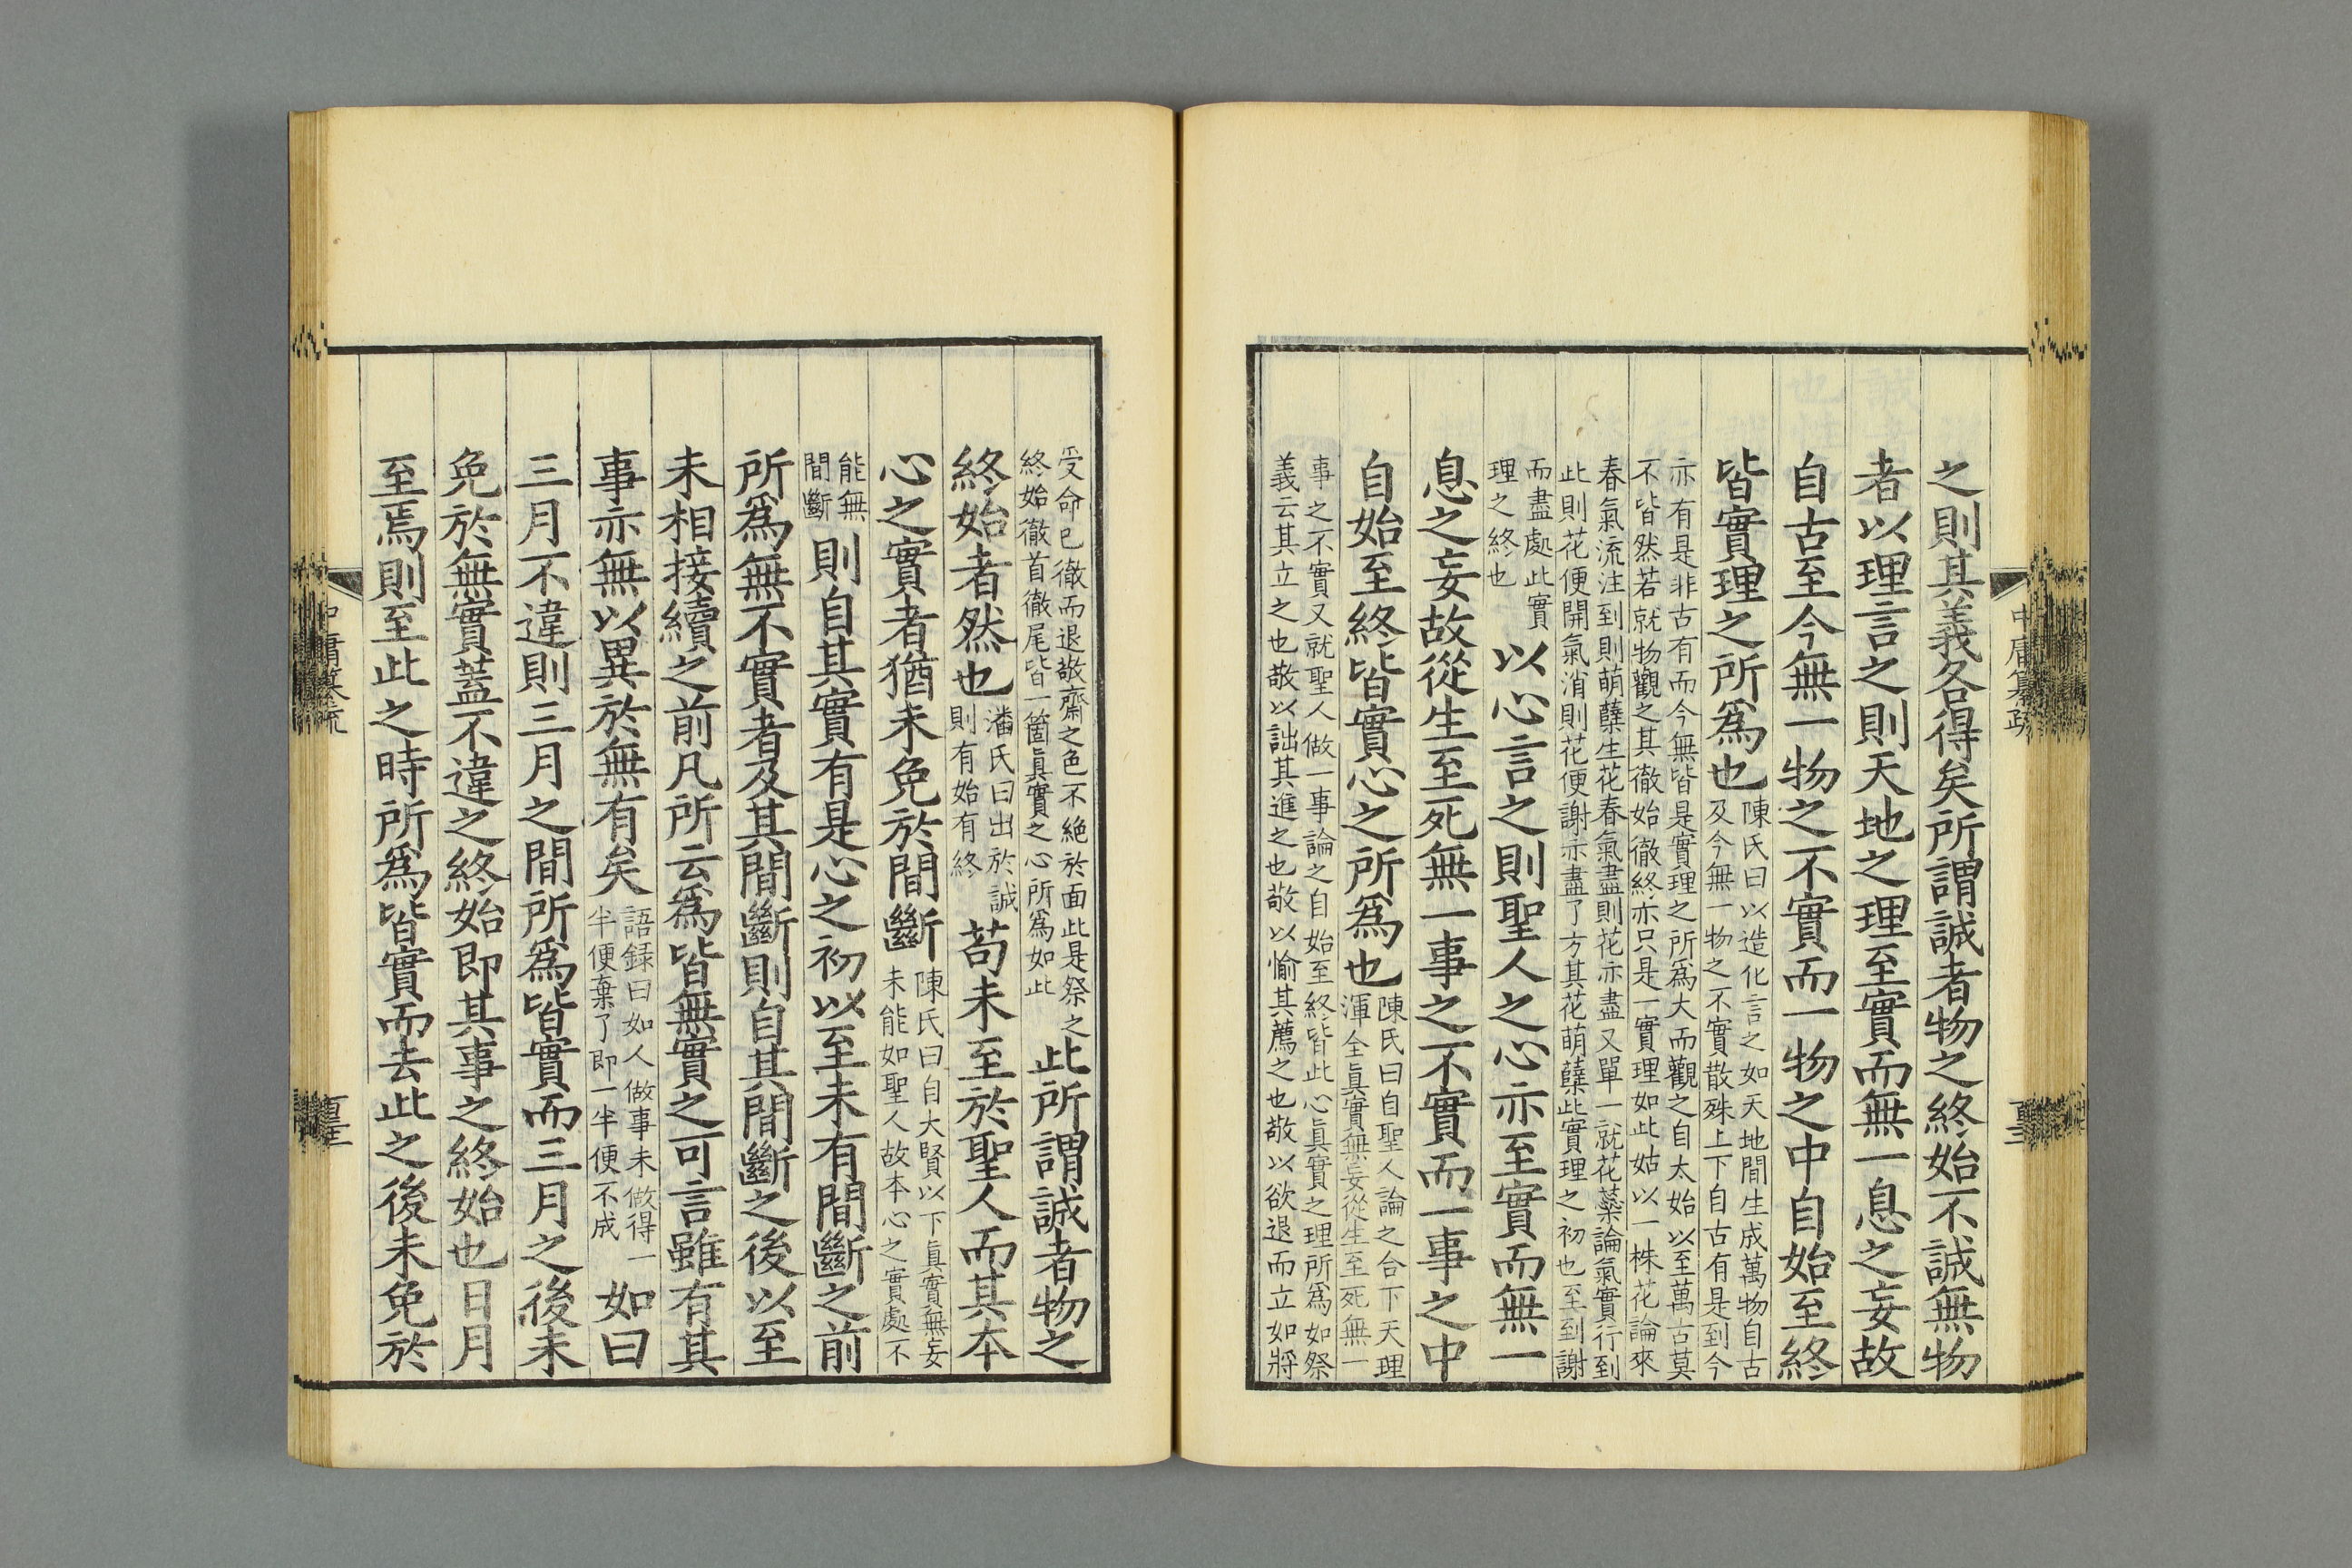 之則其義各得矣所謂誠者物之終始不誠無物
者以理言之則天地之理至實而無一息之妄故
自古至今無一物之不實而一物之中自始至終
皆實理之所爲也
陳氏曰以造化言之如天地間生成萬物自古
及今無一物之不實散殊上下自古有是到今
亦有是非古有而今無皆是實理之所爲大而觀之自太始以至萬古莫
不皆然若就物觀之其徹始徹終亦只是一實理如此姑以一株花論來
春氣流注到則萌蘖生花春氣盡則花亦盡又單一就花蘂論氣實行到
此則花便開氣消則花便謝亦盡了方其花萌蘖此實理之初也至到謝
而盡處此實
理之終也
以心言之則聖人之心亦至實而無一
息之妄故從生至死無一事之不實而一事之中
自始至終皆實心之所爲也
陳氏曰自聖人論之合下天理
渾全眞實無妄從生至死無一
事之不實又就聖人做一事論之自始至終皆此心眞實之理所爲如祭
義云其立之也敬以詘其進之也敬以愉其薦之也敬以欲退而立如將
受命已徹而退敬齋之色不絶於面此是祭之
終始徹首徹尾皆一箇眞實之心所爲如此
此所謂誠者物之
終始者然也
潘氏曰出於誠
則有始有終
苟未至於聖人而其本
心之實者猶未免於間斷
陳氏曰自大賢以下眞實無妄
未能如聖人故本心之實處不
能無
間斷
則自其實有是心之初以至未有間斷之前
所爲無不實者及其間斷則自其間斷之後以至
未相接續之前凡所云爲皆無實之可言雖有其
事亦無以異於無有矣
語録曰如人做事未做得一
半便棄了即一半便不成
如曰
三月不違則三月之間所爲皆實而三月之後未
免於無實蓋不違之終始即其事之終始也日月
至焉則至此之時所爲皆實而去此之後未免於